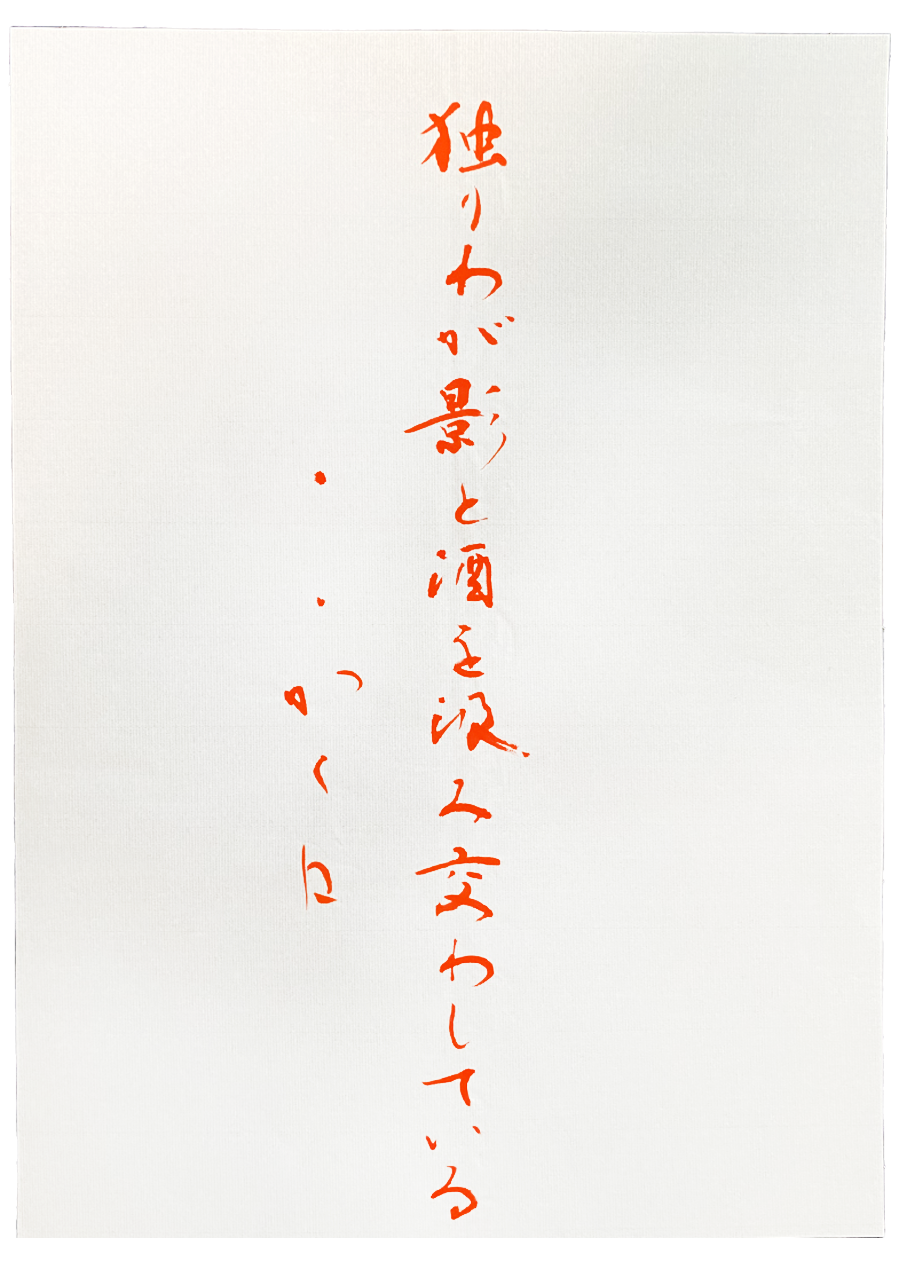 独りわが影と酒を汲み交わしている